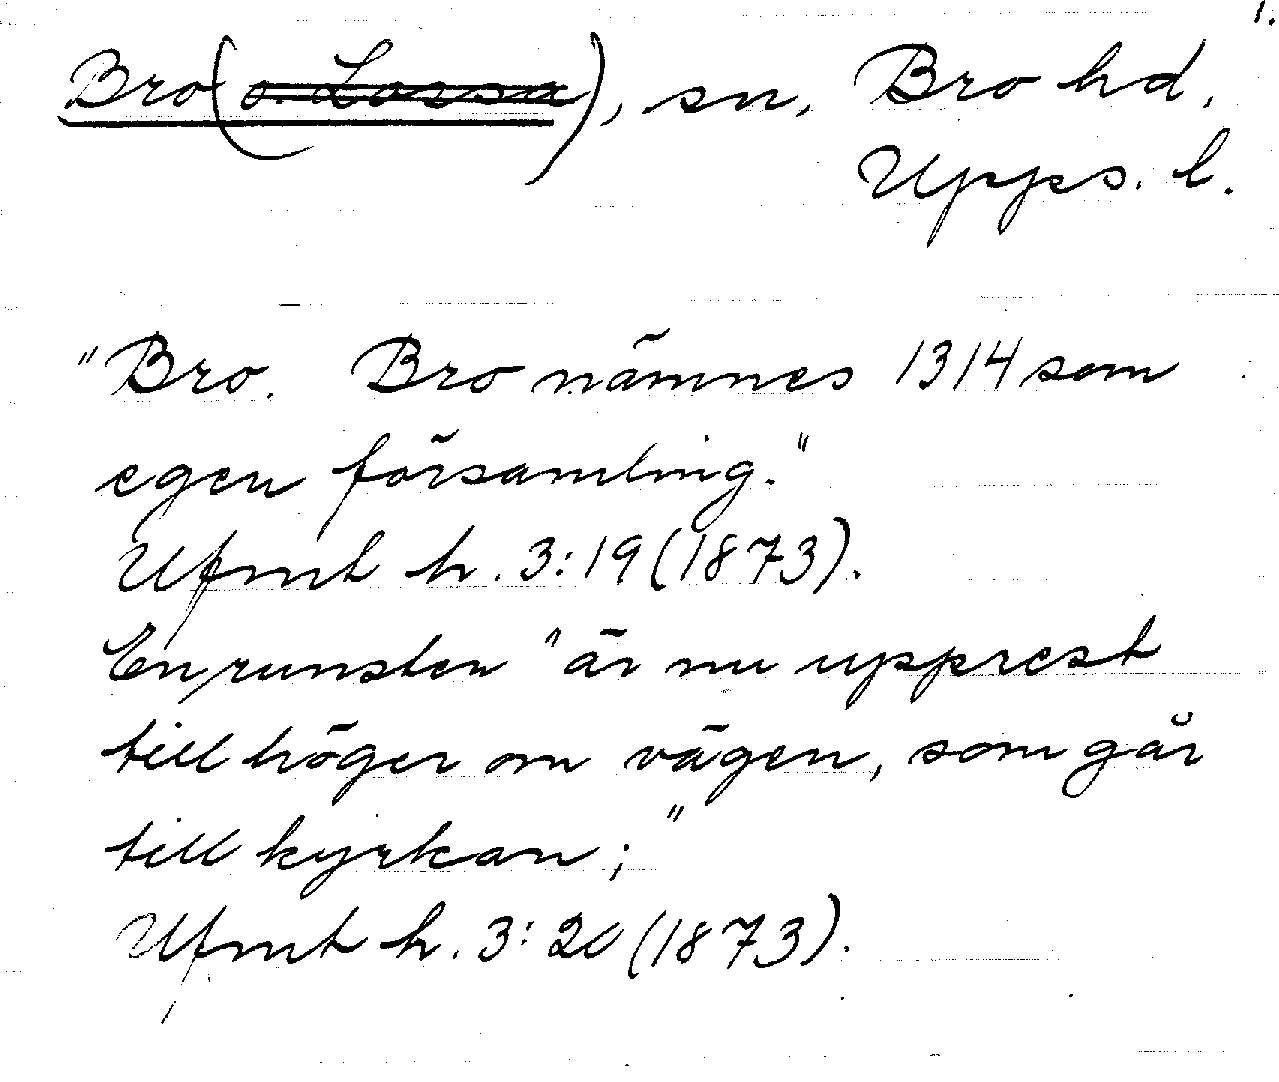 1.
Bro (o. Lossa), sn, Bro hd,
Upps. l.
"Bro. Bro nämnes 1314 som
egen församling."
Ufmt h. 3:19 (1873).
En runsten "är nu upprest
till höger om vägen, som går
till kyrkan;"
Ufmt h. 3:20 (1873).